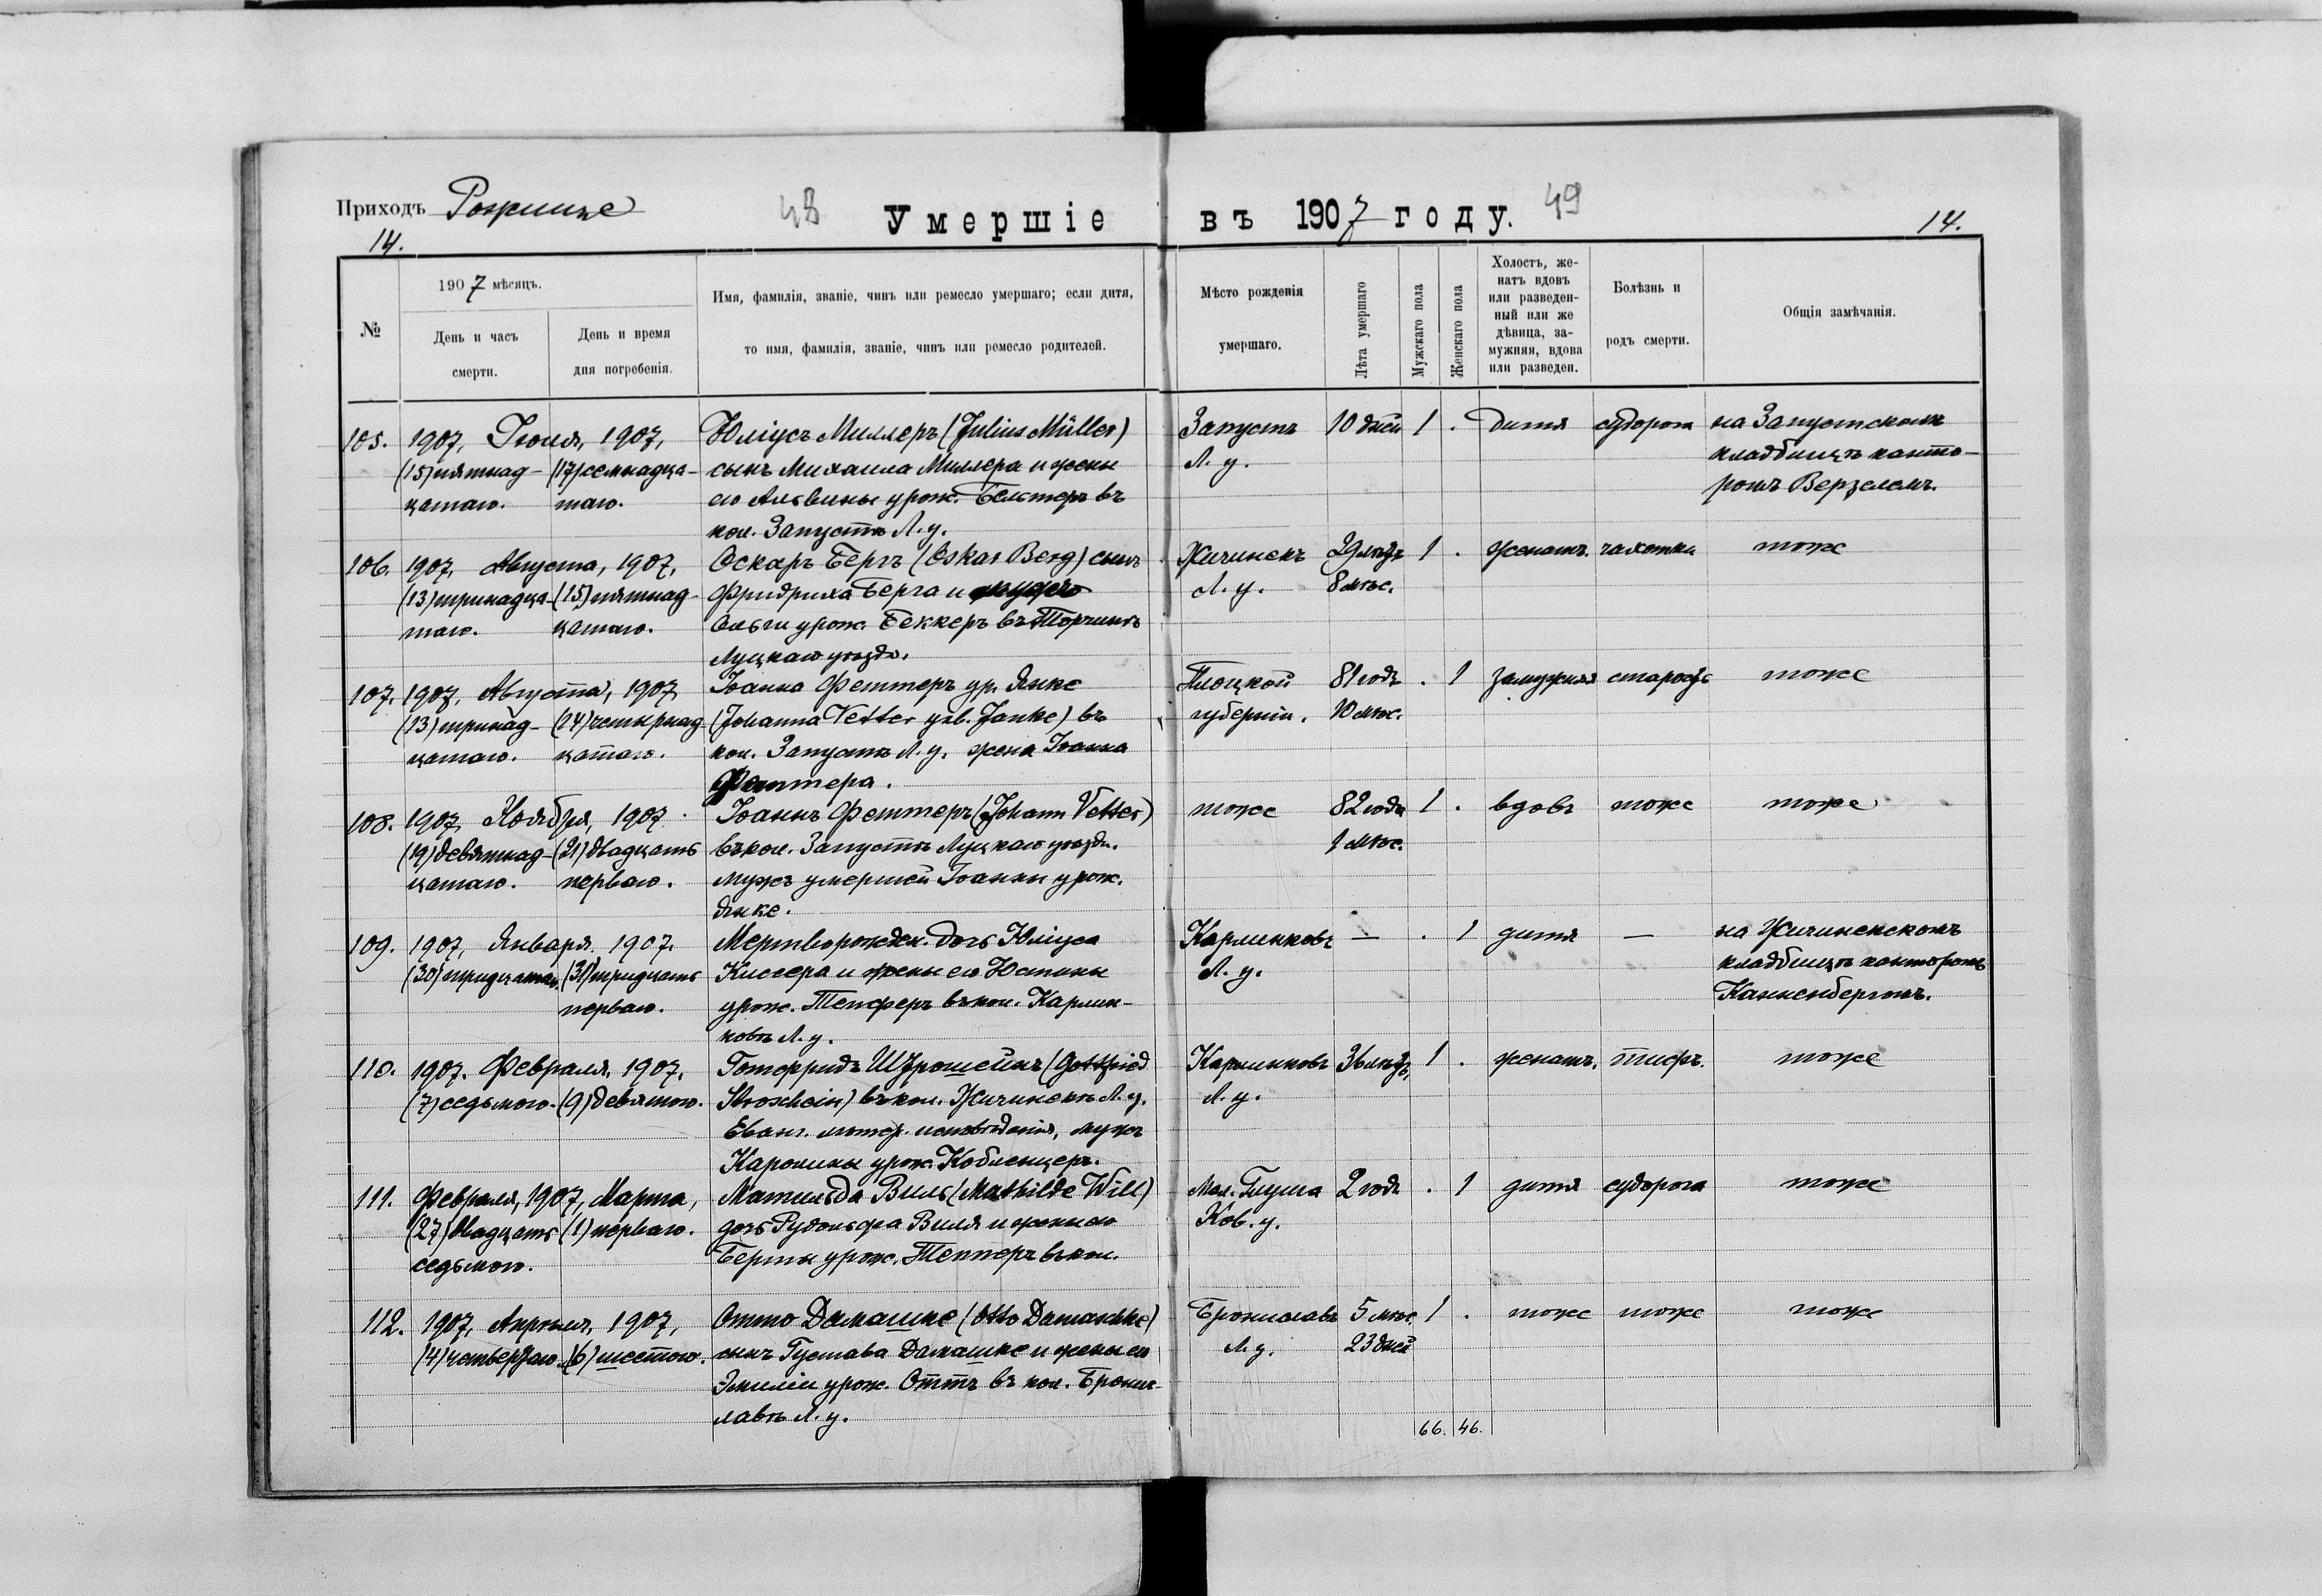 Приходъ Рожище
48
Умершіе
въ 1907 году.
49
14.
14.
№
1907 мѣсяцъ.
День и часъ
смерти.
День и время
дня погребенія.
Имя, фамилія, званіе, чинъ или ремесло умершаго; если дитя,
то имя, фамилія, званіе, чинъ или ремесло родителей.
Мѣсто рожденія
умершаго.
Лѣта умершаго
Мужскаго пола
Женскаго пола
Холостъ, же-
натъ вдовъ
или разведен-
ный или же
дѣвица, за-
мужняя, вдова
или разведен.
Болѣзнь и
родъ смерти.
Общія замѣчанія.
105. 1907, Іюля, 1907, Юліусъ Миллеръ (Julius Müller) Запустъ 10 дней 1 . дитя судорога на Запустскомъ
(15) пятнад- (17) семнадца- сынъ Михаила Миллера и жены Л. у. кладбищѣ канто-
цатаго. таго. его Альвины урож. Бельтеръ въ ромъ Верзелемъ.
кол. Запустъ Л. у.
106. 1907, Августа, 1907, Оскаръ Бергъ (Oskar Berg) сынъ Жичинекъ 29 лѣтъ 1 . женатъ. чахотка тоже
(13) тринадца- (15) пятнад- Фридриха Берга и Л. у. 8 мѣс.
таго. цатаго. Ольги урож. Беккеръ въ Торчинѣ
Луцкаго уѣзда.
107. 1907, Августа, 1907, Іоанна Феттеръ ур. Янке Плоцкой 81 годъ . 1 замужняя старость тоже
(13) тринад- (14) четырнад (Johanna Vetter geb. Janke) въ губерніи. 10 мѣс.
цатаго. цатаго. кол. Запустъ Л. у. жена Іоанна
Феттера.
108. 1907, Ноября, 1907 Іоаннъ Феттеръ (Johann Vetter) тоже 82 года 1 . вдовъ тоже тоже
(19) девятнад- (21) двадцать въ кол. Запустѣ Луцкаго уѣзда. 1 мѣс.
цатаго. перваго. мужъ умершей Іоанны урож.
Янке.
109. 1907, Января, 1907. Мертворожден. дочь Юліуса Карлинковъ — . 1 дитя — на Жичинекскомъ
(30) тридцатаго (31) тридцать Кислера и жены его Юстины Л. у. кладбищѣ канторомъ
перваго. урож. Тепферъ въ кол. Карлин- Канненбергомъ.
ковъ Л. у.
110. 1907. Февраля, 1907, Готфридъ Штрошейнъ (Gottfried Карлинковъ 36 лѣтъ, 1 . женатъ. тифъ. тоже
(7) седьмого. (9) девятого. Stroschein) въ кол. Жичинекъ Л. у. Л. у.
Еванг. лютер. исповѣданія, мужъ
Каролины урож. Кобленцеръ.
111. Февраля, 1907, Марта, Матильда Виль (Mathilde Will) Мал. Глуша 2 года . 1 дитя судорога тоже
(27) двадцать (1) перваго. дочь Рудольфа Виля и жены его Ков. у.
седьмого. Берты урож. Теппер въ кол.
112. 1907, Апрѣля, 1907, Отто Дамашке (Otto Damaschke) Брониславъ 5 мѣс. 1 . тоже тоже тоже
(4) четвертаго (6) шестого. сынъ Густава Дамашке и жены его Л. у. 23 дней
Эмиліи урож. Оттъ въ кол. Бронис-
лавъ Л. у.
66. 46.